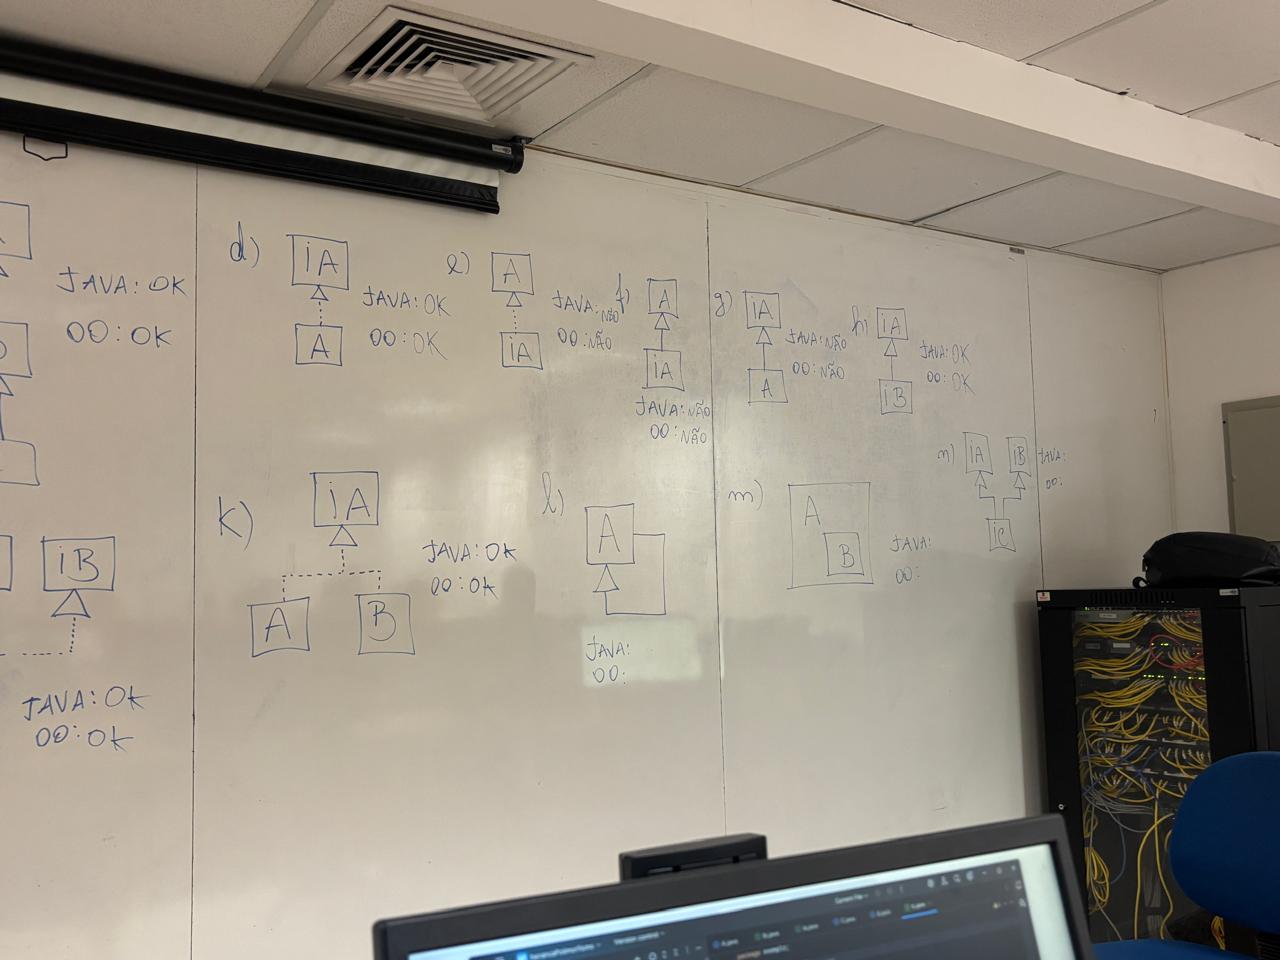 JAVA: OK
OO: OK
d)
iA
A
JAVA: OK
OO: OK
e)
A
iA
JAVA: NÃO
OO: NÃO
f)
A
iA
JAVA: NÃO
OO: NÃO
g)
iA
A
JAVA: NÃO
OO: NÃO
h)
iA
iB
JAVA: OK
OO: OK
iB
JAVA: OK
OO: OK
k)
iA
A B
JAVA: OK
OO: OK
l)
A
JAVA:
OO:
m)
A
B
JAVA:
OO:
n)
iA iB
iC
JAVA:
OO: